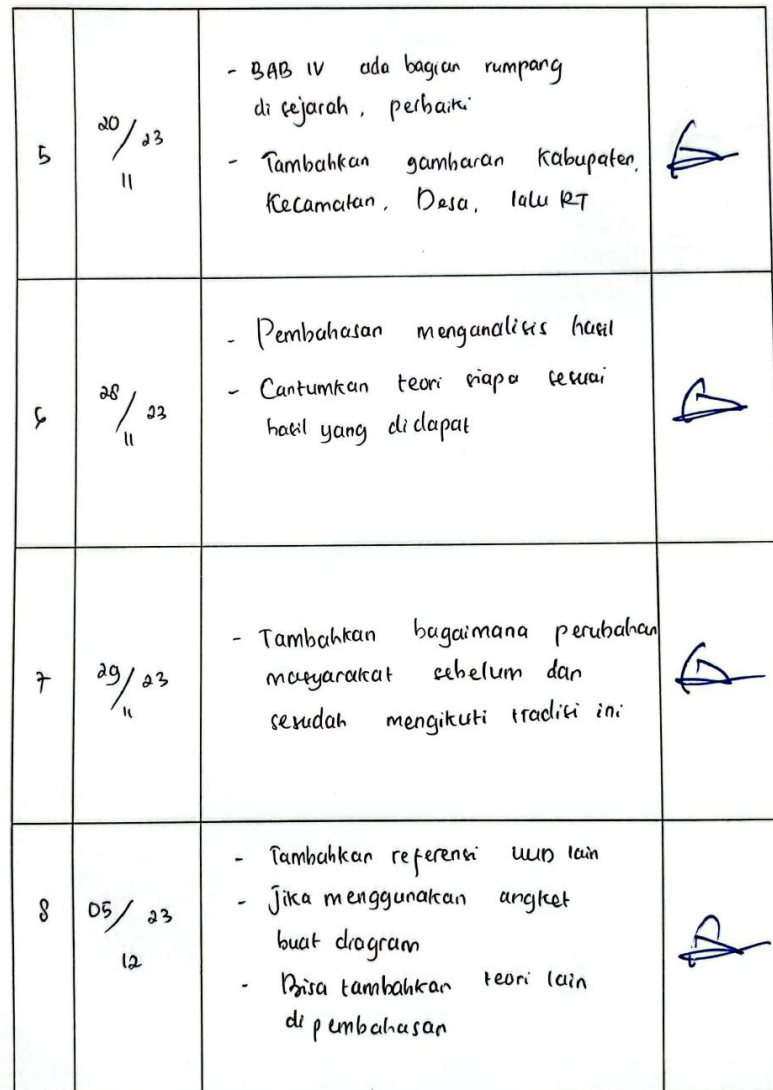 5
20/23
11
- BAB IV ada bagian rumpang
di sejarah, perbaiki
- Tambahkan gambaran Kabupaten,
Kecamatan, Desa, lalu RT
6
28/23
11
- Pembahasan menganalisis hasil
- Cantumkan teori siapa sesuai
hasil yang didapat
7
29/23
11
- Tambahkan bagaimana perubahan
masyarakat sebelum dan
sesudah mengikuti tradisi ini
8
05/23
12
- Tambahkan referensi UUD lain
- Jika menggunakan angket
buat diagram
- Bisa tambahkan teori lain
di pembahasan